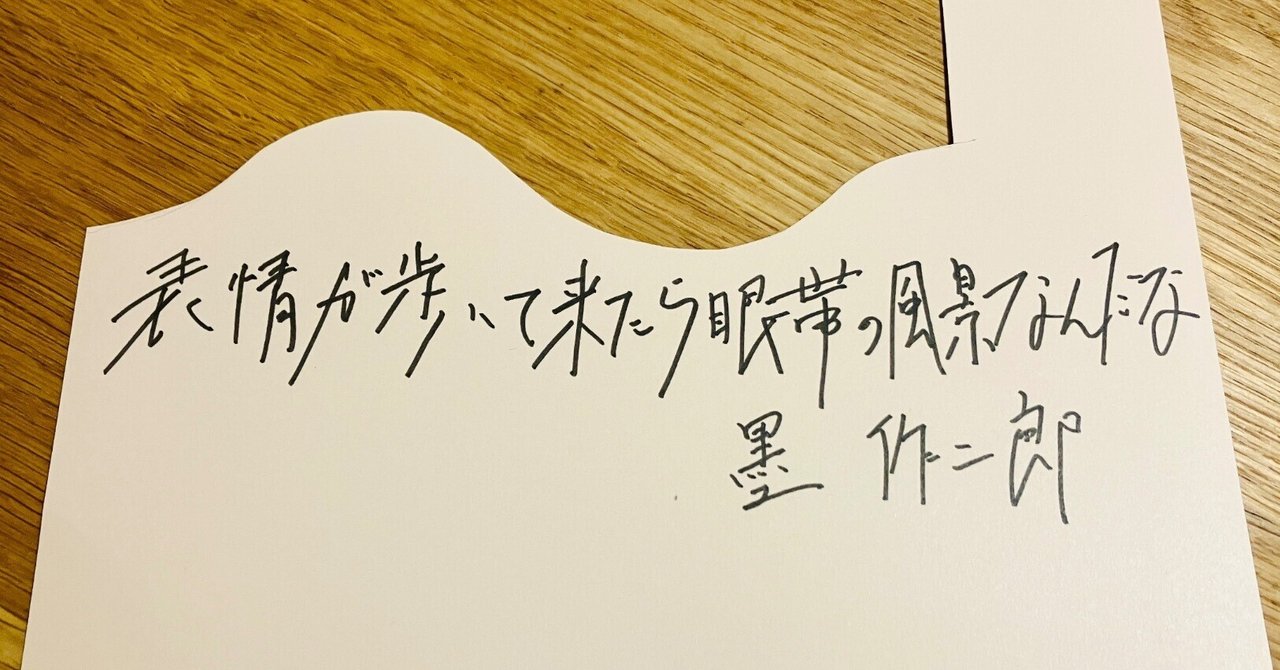 表情が歩いて来たら眼帯の風景なんだな
墨 作二郎